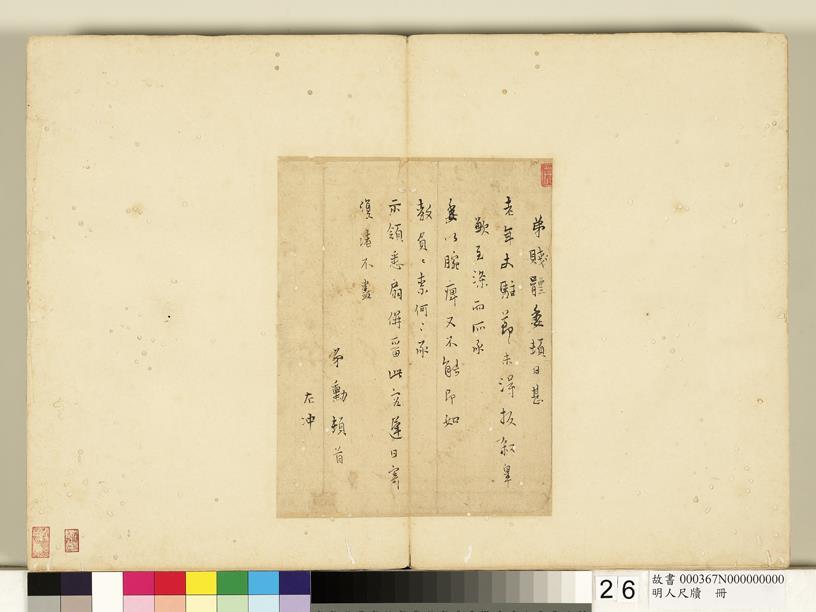 弟賤體委頓日甚
老年丈駐節未得披敘辜
歉至深而所承
委以腕痺又不能即如
教負々奈何々承
示領悉扇併留此容遲日寄
復諸不盡
弟勳頓首
左冲
26
故書 000367N000000000
明人尺牘 冊